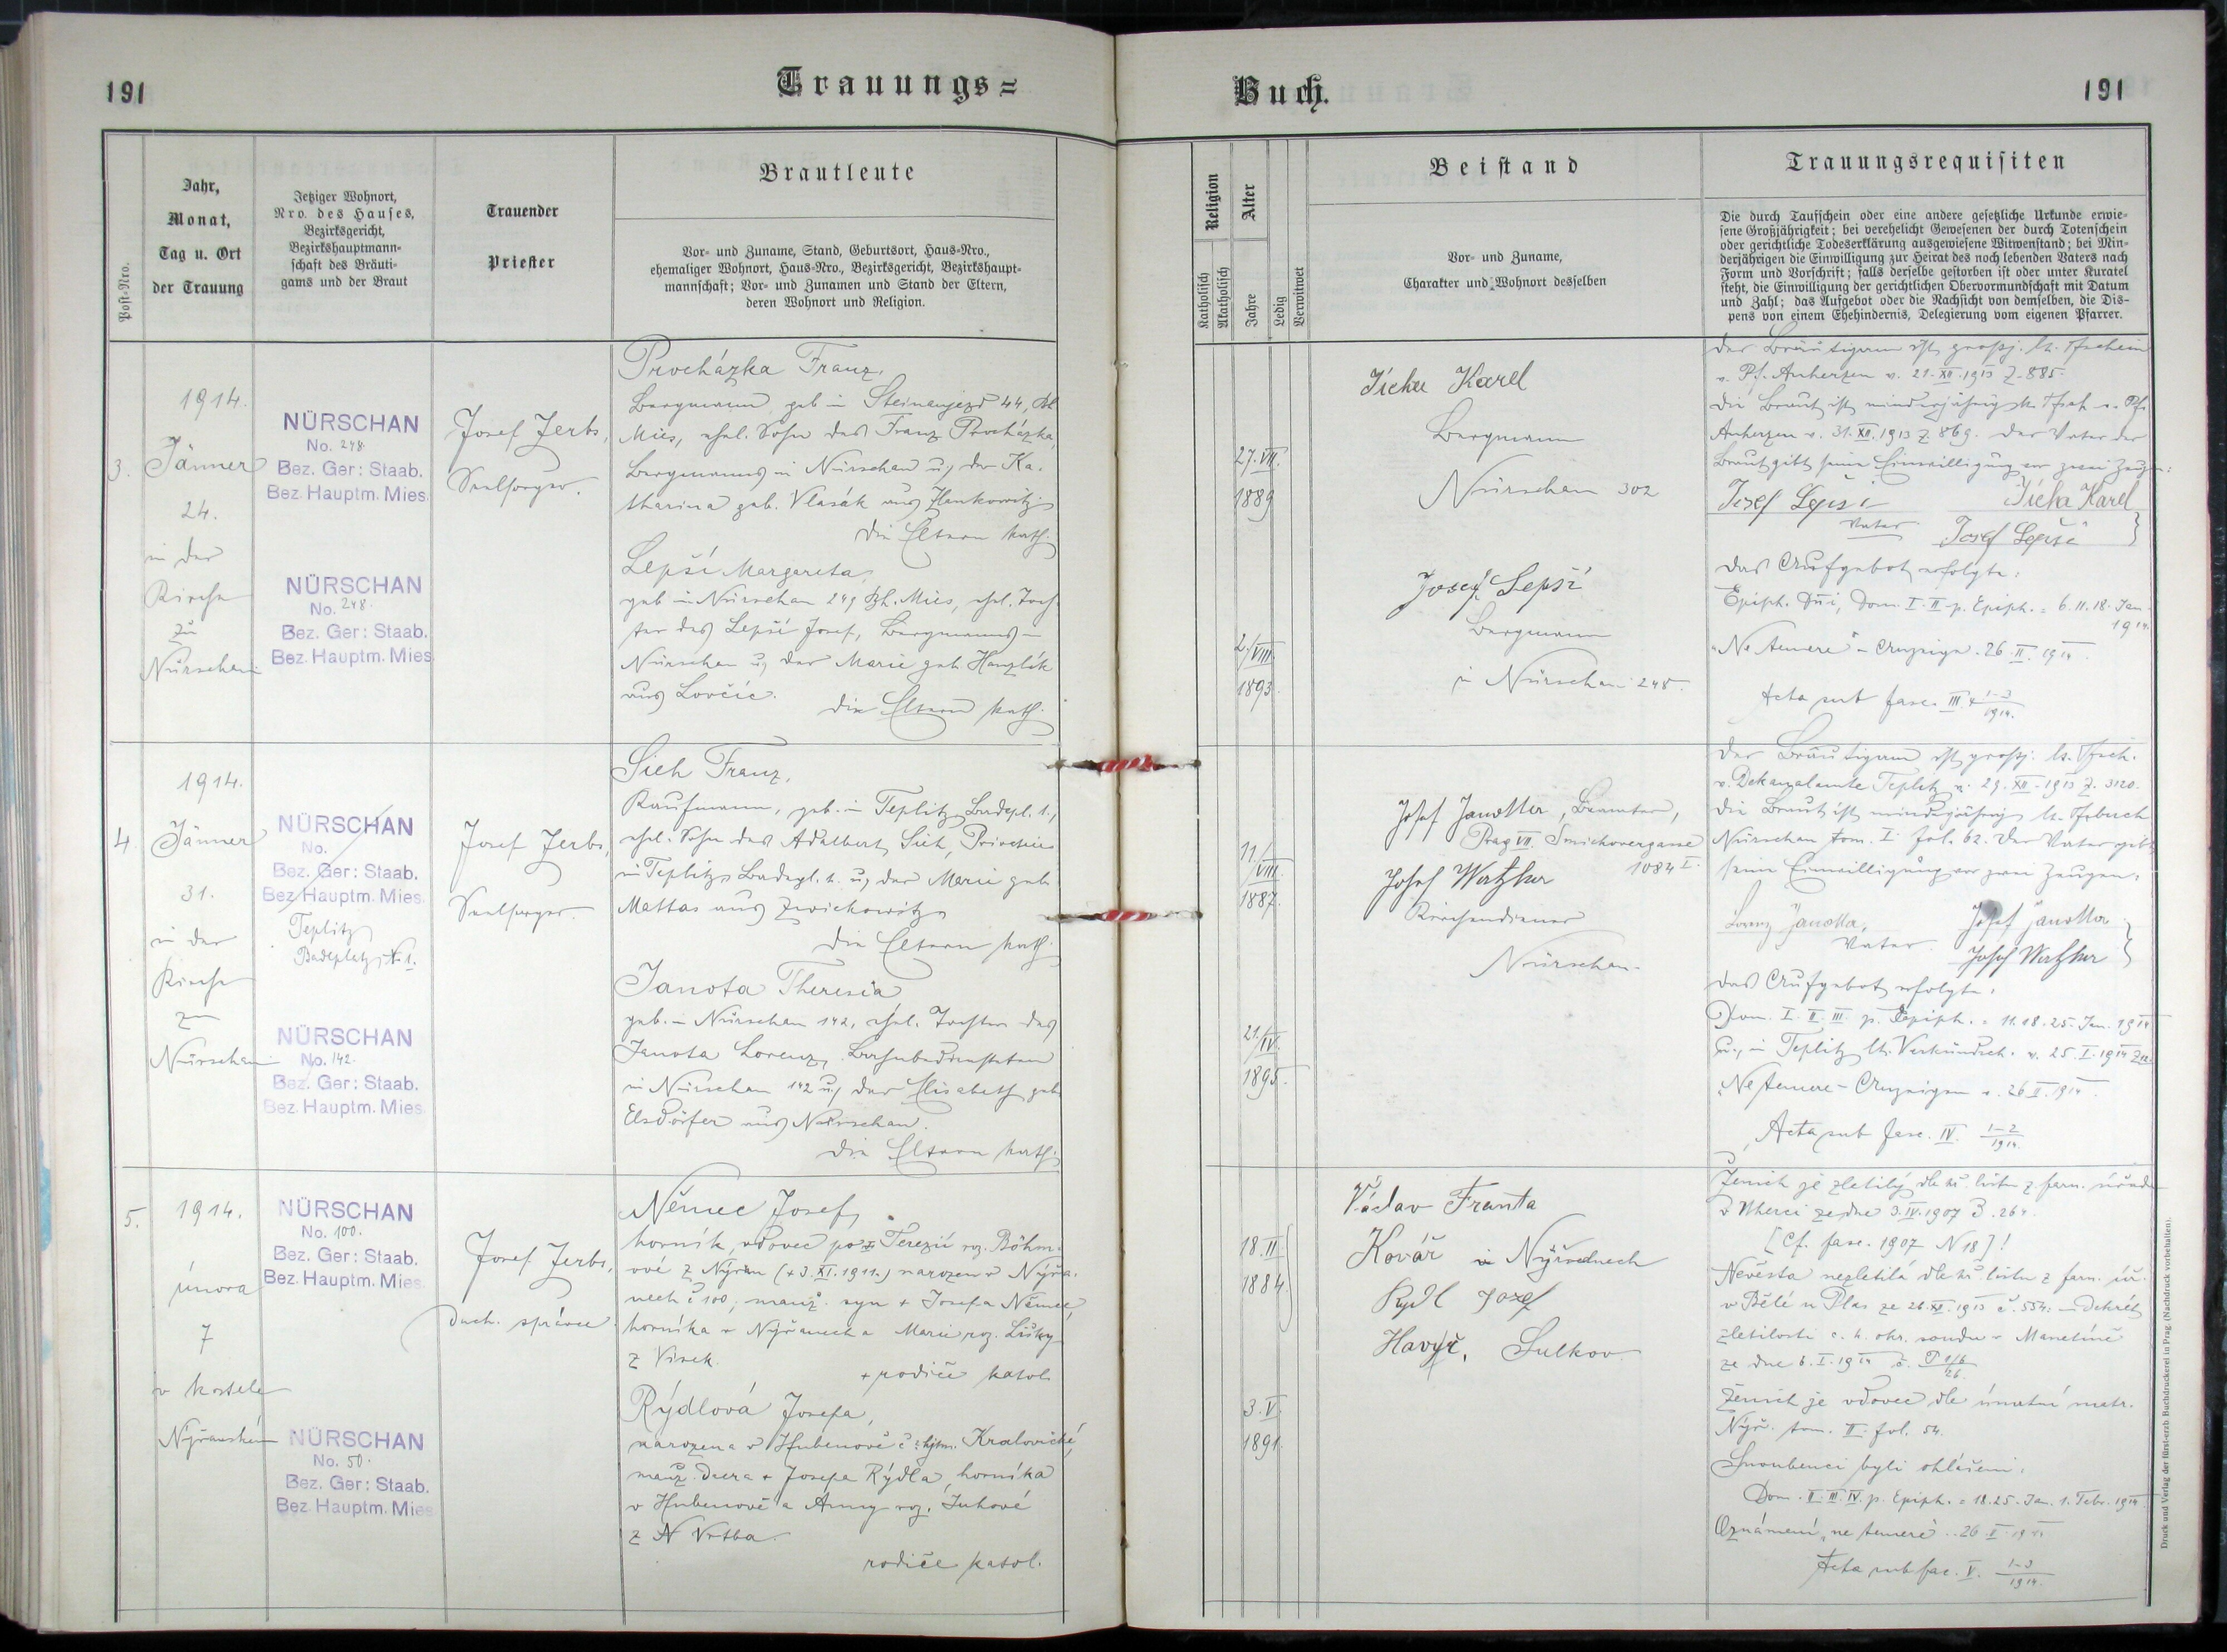 191
Trauungs=
Buch.
191
Post=Nro.
Jahr,
Monat,
Tag u. Ort
der Trauung
Jetziger Wohnort,
Nro. des Hauses,
Bezirksgericht,
Bezirkshauptmann=
schaft des Bräuti=
gams und der Braut
Trauender
Priester
Brautleute
Vor= und Zuname, Stand, Geburtsort, Haus=Nro.,
ehemaliger Wohnort, Haus=Nro., Bezirksgericht, Bezirkshaupt=
mannschaft; Vor= und Zunamen und Stand der Eltern,
deren Wohnort und Religion.
Religion
Katholisch
Akatholisch
Alter
Jahre
Ledig
Verwitwet
Beistand
Vor= und Zuname,
Charakter und Wohnort desselben
Trauungsrequisiten
Die durch Taufschein oder eine andere gesetzliche Urkunde erwie=
sene Großjährigkeit; bei verehelicht Gewesenen der durch Totenschein
oder gerichtliche Todeserklärung ausgewiesene Witwenstand; bei Min=
derjährigen die Einwilligung zur Heirat des noch lebenden Vaters nach
Form und Vorschrift; falls derselbe gestorben ist oder unter Kuratel
steht, die Einwilligung der gerichtlichen Obervormundschaft mit Datum
und Zahl; das Aufgebot oder die Nachsicht von demselben, die Dis=
pens von einem Ehehindernis, Delegierung vom eigenen Pfarrer.
3.
1914.
Jänner
24.
in der
Kirche
zu
Nürschan
NÜRSCHAN
No. 248
Bez. Ger: Staab.
Bez. Hauptm. Mies.
NÜRSCHAN
No. 248.
Bez. Ger: Staab.
Bez. Hauptm. Mies.
Josef Jerbs,
Seelsorger.
Procházka Franz,
Bergmann, geb in Steinaujezd 44, Bh
Mies, ehel. Sohn des Franz Procházka,
Bergmanns in Nürschan u. der Ka-
tharina geb. Vlasák aus
die Eltern kath.
Lepší Margareta,
geb in Nürschan 249 Bh. Mies, ehel. Toch
ter des Lepší Josef, Bergmanns in
Nürschan u. der Marie geb. Hanzlík
aus Lovčic.
die Eltern kath.
27. VII.
1889
2./VIII
1893.
Karel
Bergmann
Nürschan 302
Josef Lepší
Bergmann
in Nürschan 248.
der Bräutigam ist großj. lt. Tfschein
v. Pf. Auherzen v. 21. XII. 1913 Z. 885.
die Braut ist minderjährig lt. Tfsch v. Pf.
Auherzen v. 31. XII. 1913 Z. 869. der Vater der
Braut gibt seine Einwilligung vor zwei Zeugen:
Josef Lepši
Karel
Vater
Josef Lepši
das Aufgebot erfolgte:
Epiph. Dni, Dom. I. II. p. Epiph. = 6. 11. 18. Jan.
1914.
"Ne temere" - Anzeige. 26. II. 1914.
Acta sub fasc. III. 1-3
1914.
4.
1914.
Jänner
31.
in der
Kirche
zu
Nürschan
NÜRSCHAN
No.
Bez. Ger: Staab.
Bez. Hauptm. Mies.
Teplitz
Badeplatz, N. 1.
NÜRSCHAN
No. 142.
Bez. Ger: Staab.
Bez. Hauptm. Mies.
Josef Jerbs,
Seelsorger.
Sich Franz,
Kaufmann, geb. in Teplitz, Badepl. 1.,
ehel. Sohn des Adalbert Sich, Privatier
in Teplitz, Badepl. 1. u. der Marie geb.
Mattas aus Zwichowitz
die Eltern kath.
Janota Theresia
geb. in Nürschan 142, ehel. Tochter des
Janota Lorenz, Bahnbediensteten
in Nürschan 142 u. der Elisabeth geb
Elsdörfer aus Nürschan.
die Eltern kath.
11./
VIII
1887.
21./
IV.
1895.
Josef Janotta, Beamter,
Prag VII. Smichovergasse
1084 I.
Josef Watzka
Kirchendiener
Nürschan.
der Bräutigam ist großj. lt. Tfsch.
v. Dekanalamte Teplitz v. 29. XII. 1913 Z. 3120.
die Braut ist minderjährig lt. Tfbuch
Nürschan tom. I. fol. 62. der Vater gibt
seine Einwilligung vor zwei Zeugen:
Lorenz Janotta,
Josef Janotta
Vater.
Josef Watzka
das Aufgebot erfolgte:
Dom. I. II. III. p. Epiph. = 11. 18. 25. Jan. 1914
u. in Teplitz lt. Verkündsch. v. 25. I. 1914
Ne temere - Anzeige v. 26 II. 1914.
Acta sub fasc. IV. 1-2
1914.
5.
1914.
února
7
v kostele
Nýřanském
NÜRSCHAN
No. 100.
Bez. Ger: Staab.
Bez. Hauptm. Mies.
NÜRSCHAN
No. 50.
Bez. Ger: Staab.
Bez. Hauptm. Mies.
Josef Jerbs,
duch. správce.
Němec Josef,
horník, vdovec po Terezii roz. Böhm-
ové z Nýřan (+3. XI. 1911.) narozen v Nýřa-
nech č 100, manž. syn + Josefa Němce,
horníka v Nýřanech a Marie roz. Lišky
z Vísek.
+ rodiče katol.
Rýdlová Josefa,
narozena v Hubenově č hejtm. Kralovické,
manž. dcera + Josefa Rýdla, horníka
v Hubenově a Anny roz.
z Vrtba.
rodiče katol.
18. II.
1884.
3. V.
1891.
Václav Franta
Kovář in Nýřanech
Rýdl Jozef
Havýř, Sulkov
Ženich je zletilý dle kř. listu z farn. úřadu
v Uherci ze dne 3. IV. 1907
[Cf. fasc. 1907 N 18]!
Nevěsta nezletilá dle kř. listu z farn. úř.
v Bělé u Plas ze 26. XI. 1913 č. 554: dekrét
zletilosti c. k. okr. soudu v Manetíně
ze dne 6. I. 1914 č.
Ženich je vdovec dle úmrtní matr.
Nýř. tom. II. fol. 54.
Snoubenci byli ohlášeni:
Dom. II. III. IV. p. Epiph. = 18. 25. Jan. 1. Febr. 1914.
Oznámení "ne temere"
Acta sub fac. V. 1-3
1914.
Druck und Verlag der fürst-erzb. Buchdruckerei in Prag. (Nachdruck vorbehalten).